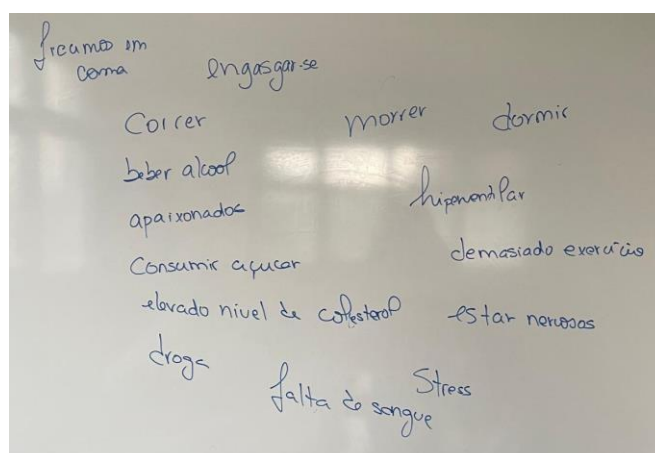 ficamos em
coma
engasgar-se
Correr
morrer
dormir
beber alcool
hiperventilar
apaixonados
demasiado exercicio
Consumir açucar
elevado nivel de colesterol
estar nervosos
droga
Stress
falta de sangue